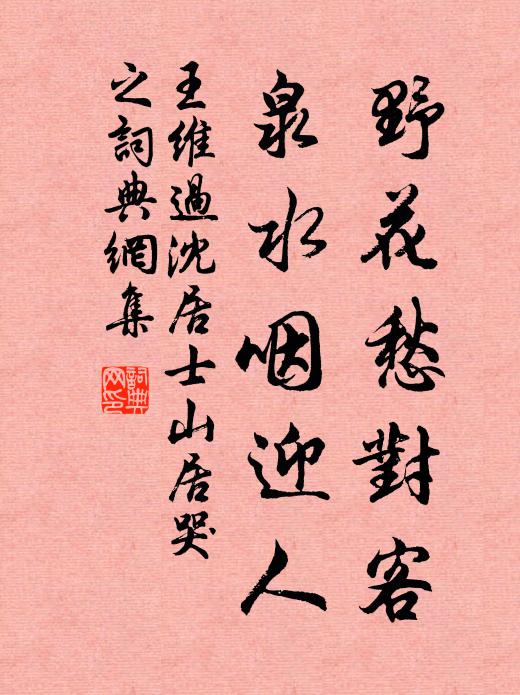 野花愁對客
泉水咽迎人
王維過沈居士山居哭
之詞典網集
詞典網印